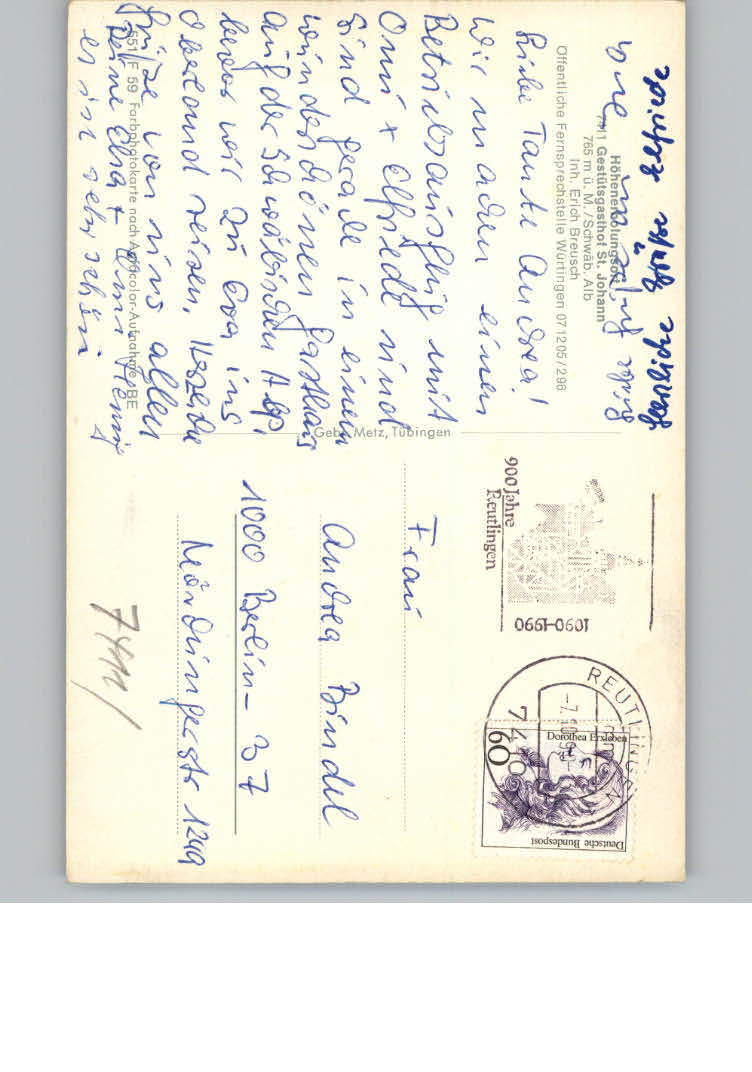 Höhenerholungsort
7411 Gestütsgasthof St. Johann
765 m ü. M. / Schwäb. Alb
Inh. Erich Breusch
Öffentliche Fernsprechstelle Würtingen 07 12 05 / 2 96
Liebe Tante Andrea!
Wir machen einen
Betriebsausflug mit
Omi + Elfriede und
sind gerade in einem
wunderschönen Gasthaus
auf der Schwäbischen Alp,
bevor wir zu Eva ins
Oberland reisen.
Grüße von uns allen
Deine Elsa +
es ist sehr schön
herzliche Grüße Elfriede
551 F 59 Farbphotokarte nach Agfacolor-Aufnahme BE
Gebr. Metz, Tübingen
900 Jahre
Reutlingen
1090-1990
REUTLINGEN
7410
Dorothea Erxleben
60
Deutsche Bundespost
Frau
Andrea Bindel
1000 Berlin - 37
Mörchingerstr 124a
7411/